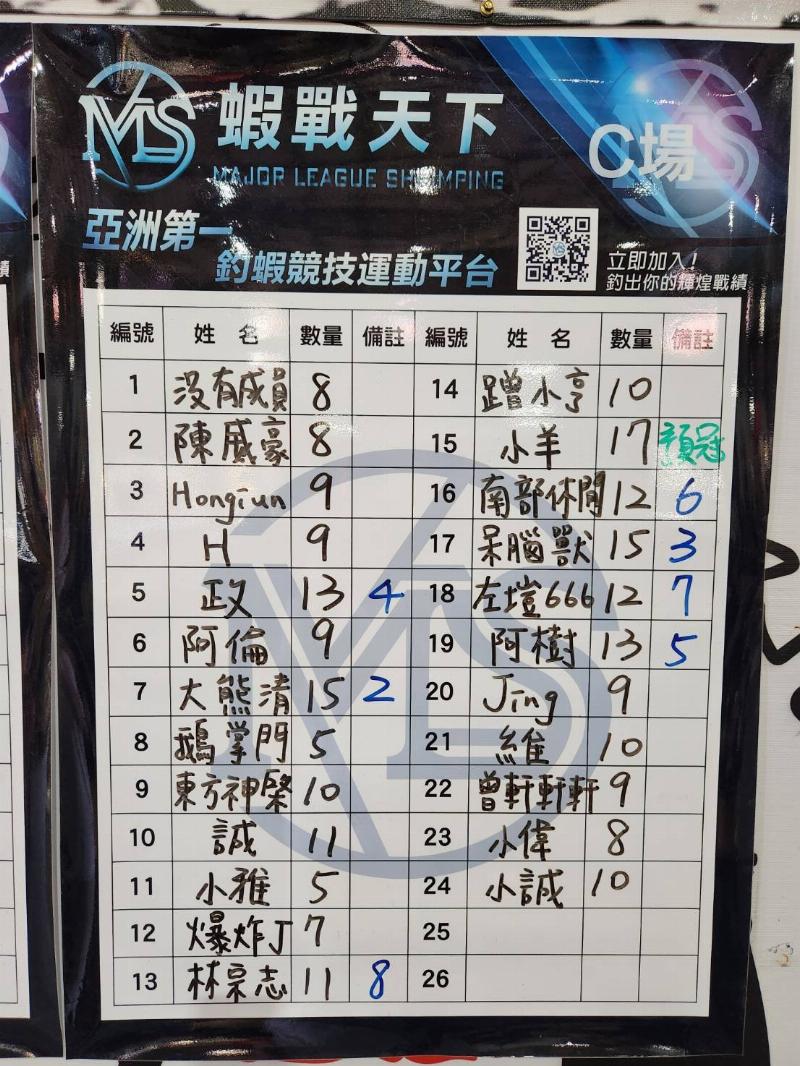 MLS 蝦戰天下
MAJOR LEAGUE SHRIMPING
C場
亞洲第一
釣蝦競技運動平台
立即加入!
釣出你的輝煌戰績
編號 姓名 數量 備註 編號 姓名 數量 備註
1 沒有成員 8 14 蹭小亨 10
2 陳威豪 8 15 小羊 17 預冠
3 Hongiun 9 16 南部休閒 12 6
4 H 9 17 呆腦獸 15 3
5 政 13 4 18 左塏666 12 7
6 阿倫 9 19 阿樹 13 5
7 大熊清 15 2 20 Jing 9
8 鵝掌門 5 21 維 10
9 東方神緊 10 22 曾軒軒軒 9
10 誠 11 23 小偉 8
11 小雅 5 24 小誠 10
12 爆炸J 7 25
13 林宗志 11 8 26
績